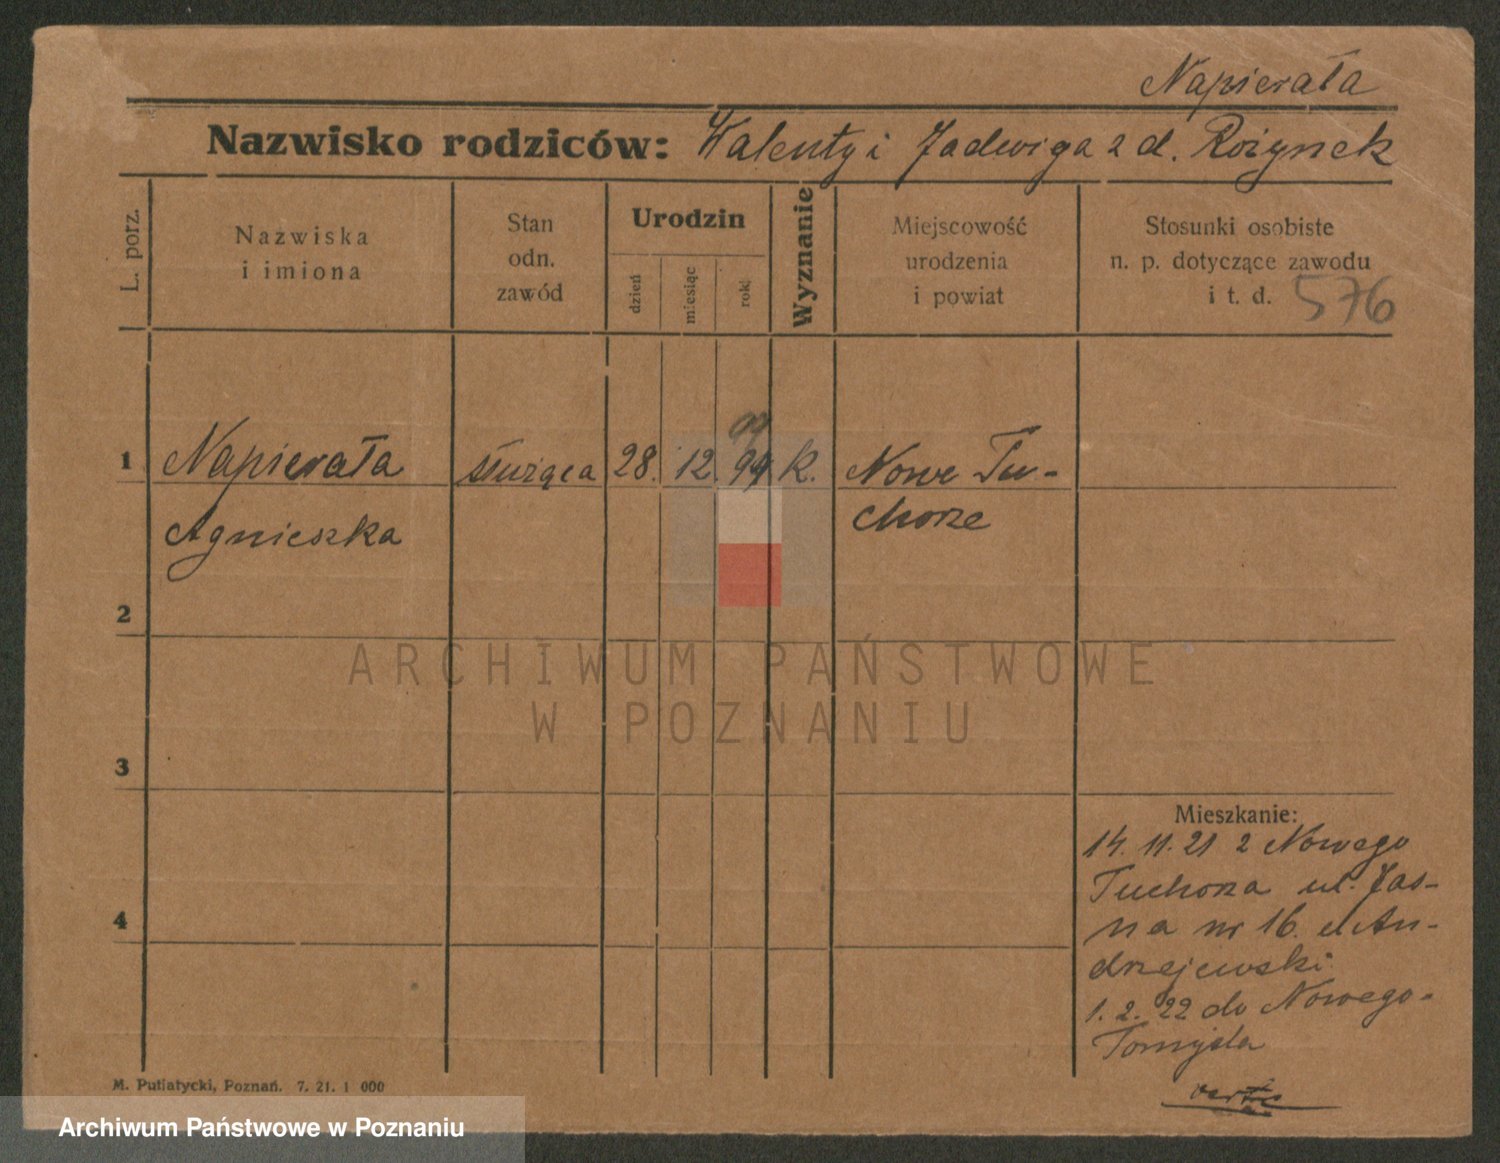 Napierała
Nazwisko rodziców: Walenty i Jadwiga z d. Rożynek
L. porz.
Nazwiska
i imiona
Stan
odn.
zawód
Urodzin
dzień
miesiąc
rok
Wyznanie
Miejscowość
urodzenia
i powiat
Stosunki osobiste
n. p. dotyczące zawodu
i t. d. 576
99
1 Napierała służąca 28. 12. 99 k. Nowe Tu-
Agnieszka chorze
2
3
4
ARCHIWUM PAŃSTWOWE
W POZNANIU
Mieszkanie:
14. 11. 21 z Nowego
Tuchorza ul. Jas-
na nr 16. u An-
drzejewski.
1. 2. 22 do Nowego-
Tomyśla
M. Putiatycki, Poznań. 7. 21. 1 000
Archiwum Państwowe w Poznaniu